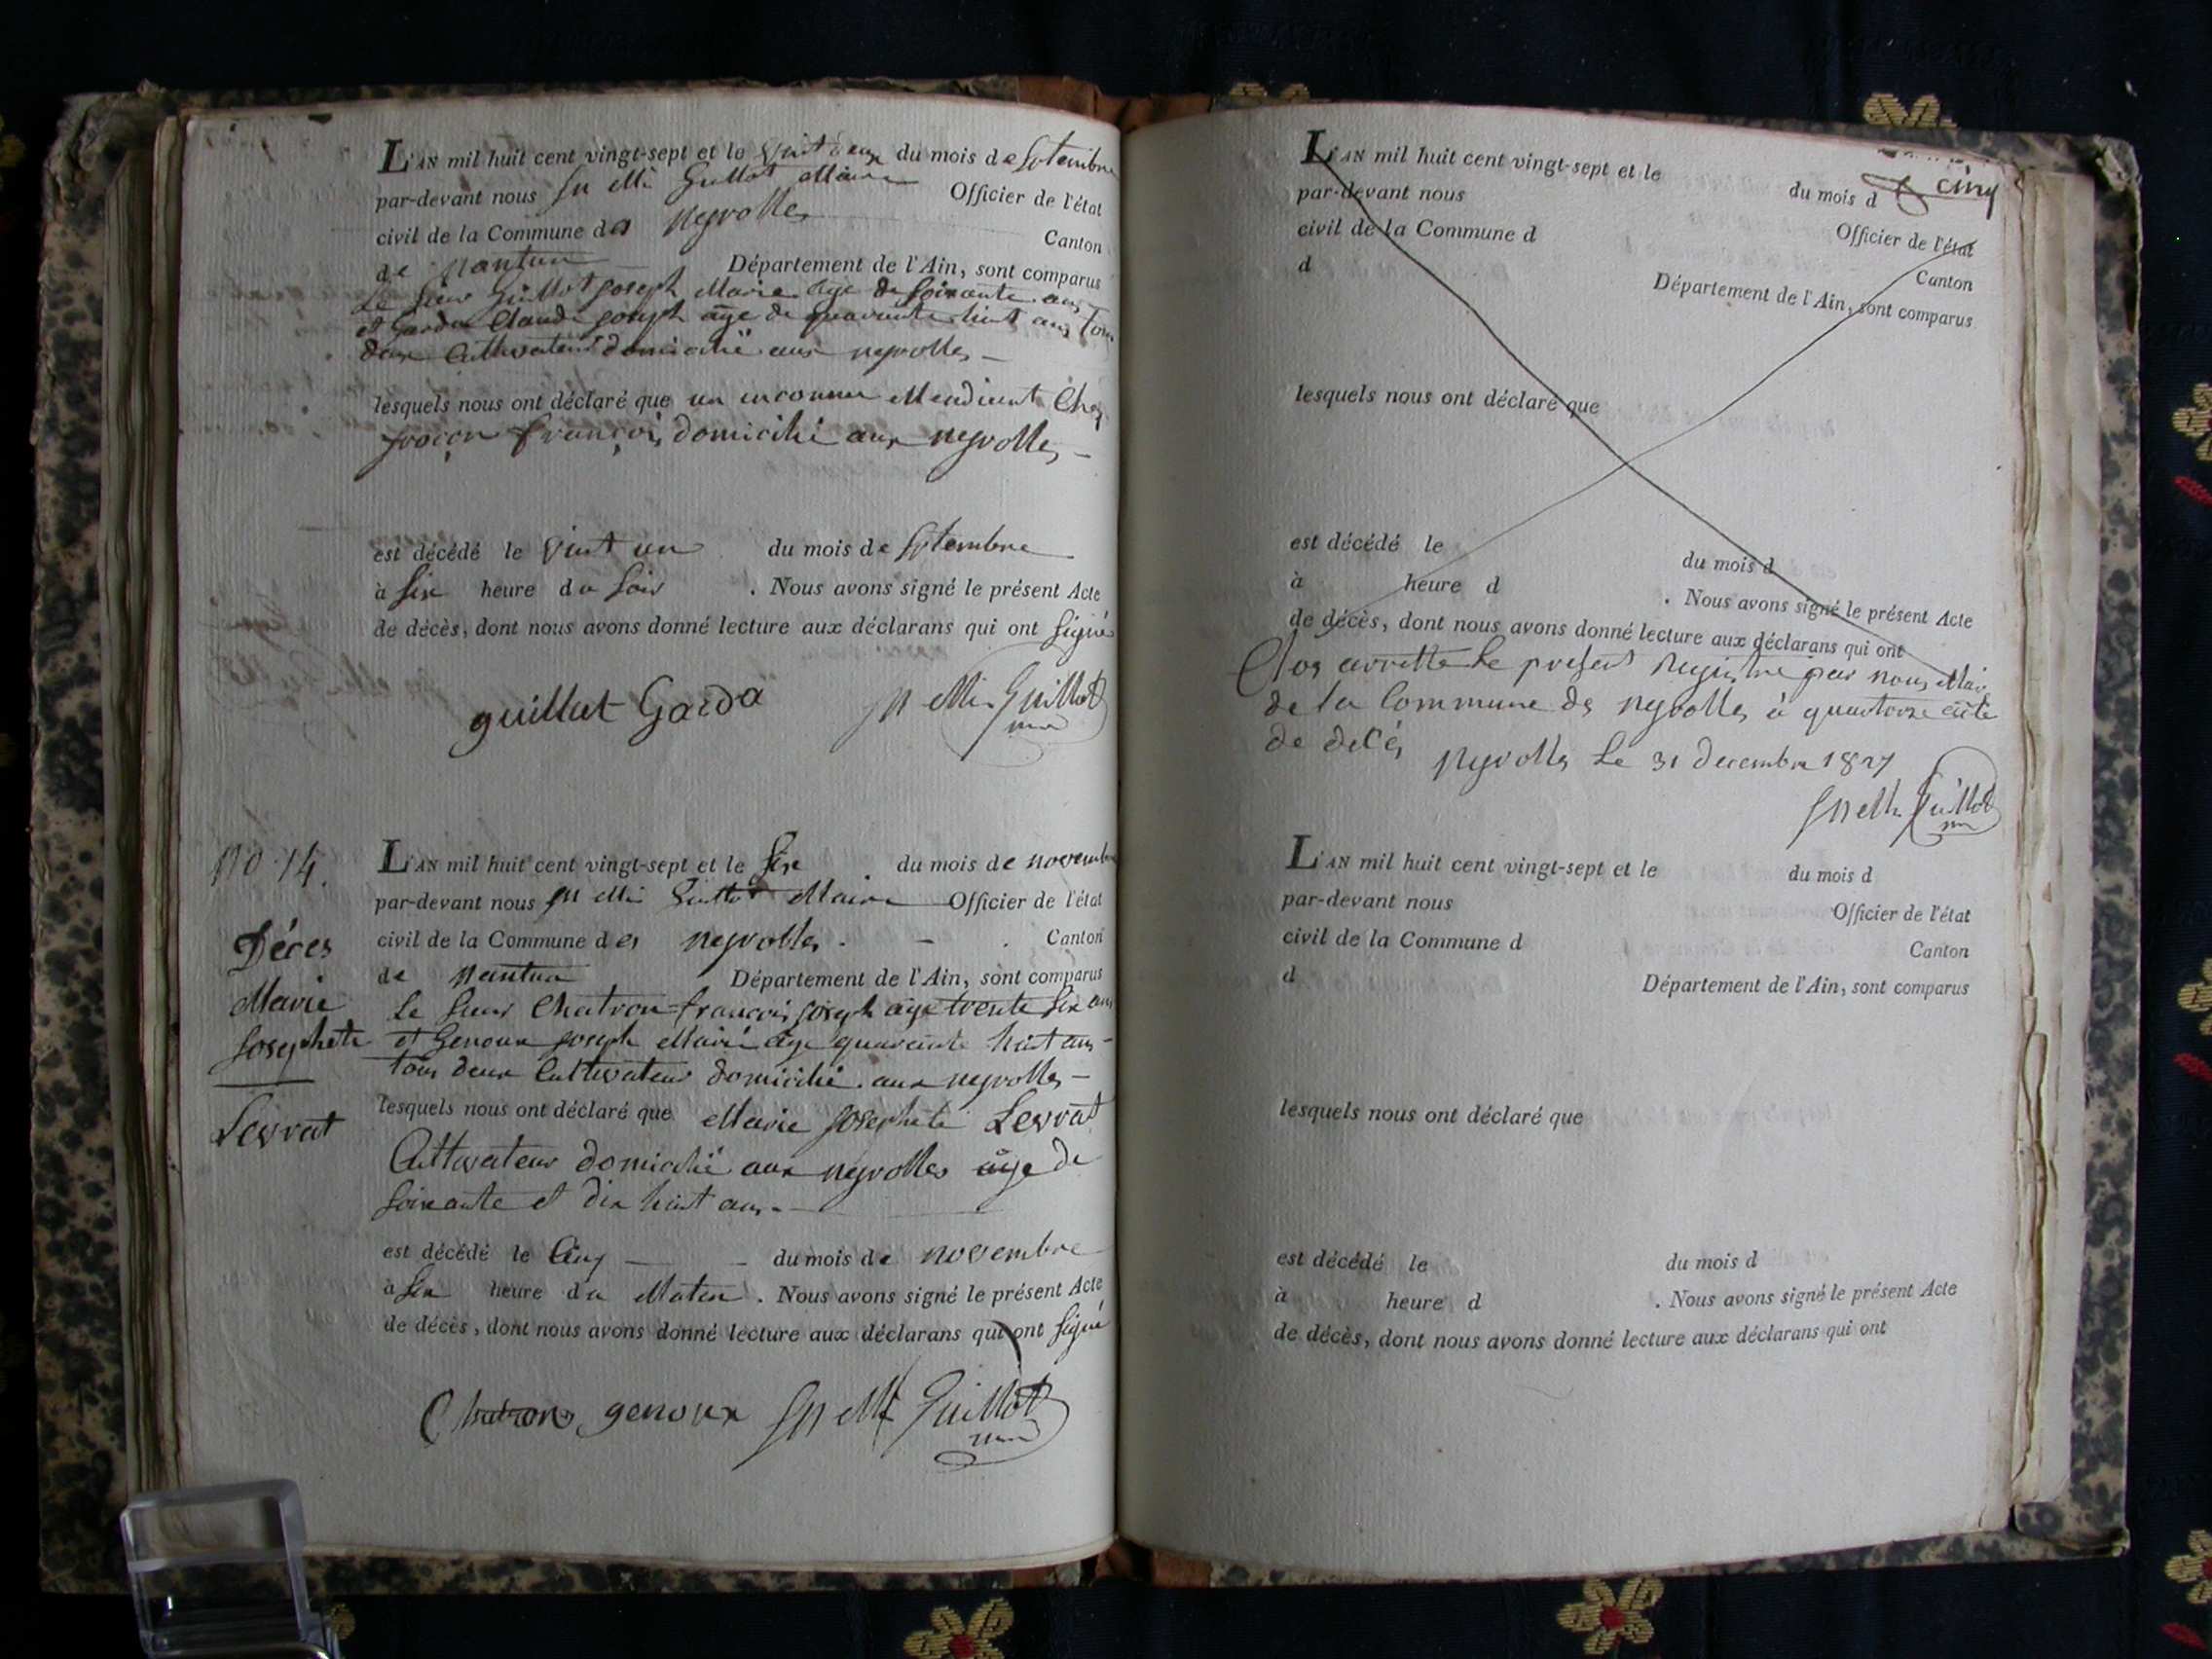 L'AN mil huit cent vingt-sept et le vint deux du mois de Setembre
par-devant nous Jn Mie Guillot Maire Officier de l'état
civil de la Commune des Neyrolles Canton
de Nantua Département de l'Ain, sont comparus
Le Sieur Guillot joseph Marie age de soixante ans
et Garda Claude joseph age de quarante huit ans tous
deux Cultivateur domicilié aux neyrolles
lesquels nous ont déclaré que un inconnu Mendient Chez
françois domicilié aux neyrolles
est décédé le vint un du mois de Setembre
à six heure du soir . Nous avons signé le présent Acte
de décès, dont nous avons donné lecture aux déclarans qui ont signé
guillat Garda Jn Mie Guillot
No 14.
Déces
Marie
Josephete
Levrat
L'AN mil huit cent vingt-sept et le six du mois de novembre
par-devant nous Jn Mie Guillot Maire Officier de l'état
civil de la Commune des neyrolles Canton
de Nantua Département de l'Ain, sont comparus
Le Sieur Chatron françois joseph age trente six ans
et Genoux joseph Marie age quarante huit ans
tous deux Cultivateur domicilié aux neyrolles
lesquels nous ont déclaré que Marie josephete Levrat
Cultivateur domicilié aux neyrolles age de
soixante et dix huit ans
est décédé le Cinq du mois de novembre
à six heure du Matin . Nous avons signé le présent Acte
de décès, dont nous avons donné lecture aux déclarans qui ont signé
Chatron genoux Jn Mie Guillot
cinq
L'AN mil huit cent vingt-sept et le du mois d
par-devant nous Officier de l'état
civil de la Commune d Canton
d Département de l'Ain, sont comparus
lesquels nous ont déclaré que
est décédé le du mois d
à heure d . Nous avons signé le présent Acte
de décès, dont nous avons donné lecture aux déclarans qui ont
Clos arretté le present Registre par nous Maire
de la Commune des neyrolles à quatorze acte
de decés
Neyrolles Le 31 decembre 1827
Jn Mie Guillot
L'AN mil huit cent vingt-sept et le du mois d
par-devant nous Officier de l'état
civil de la Commune d Canton
d Département de l'Ain, sont comparus
lesquels nous ont déclaré que
est décédé le du mois d
à heure d . Nous avons signé le présent Acte
de décès, dont nous avons donné lecture aux déclarans qui ont